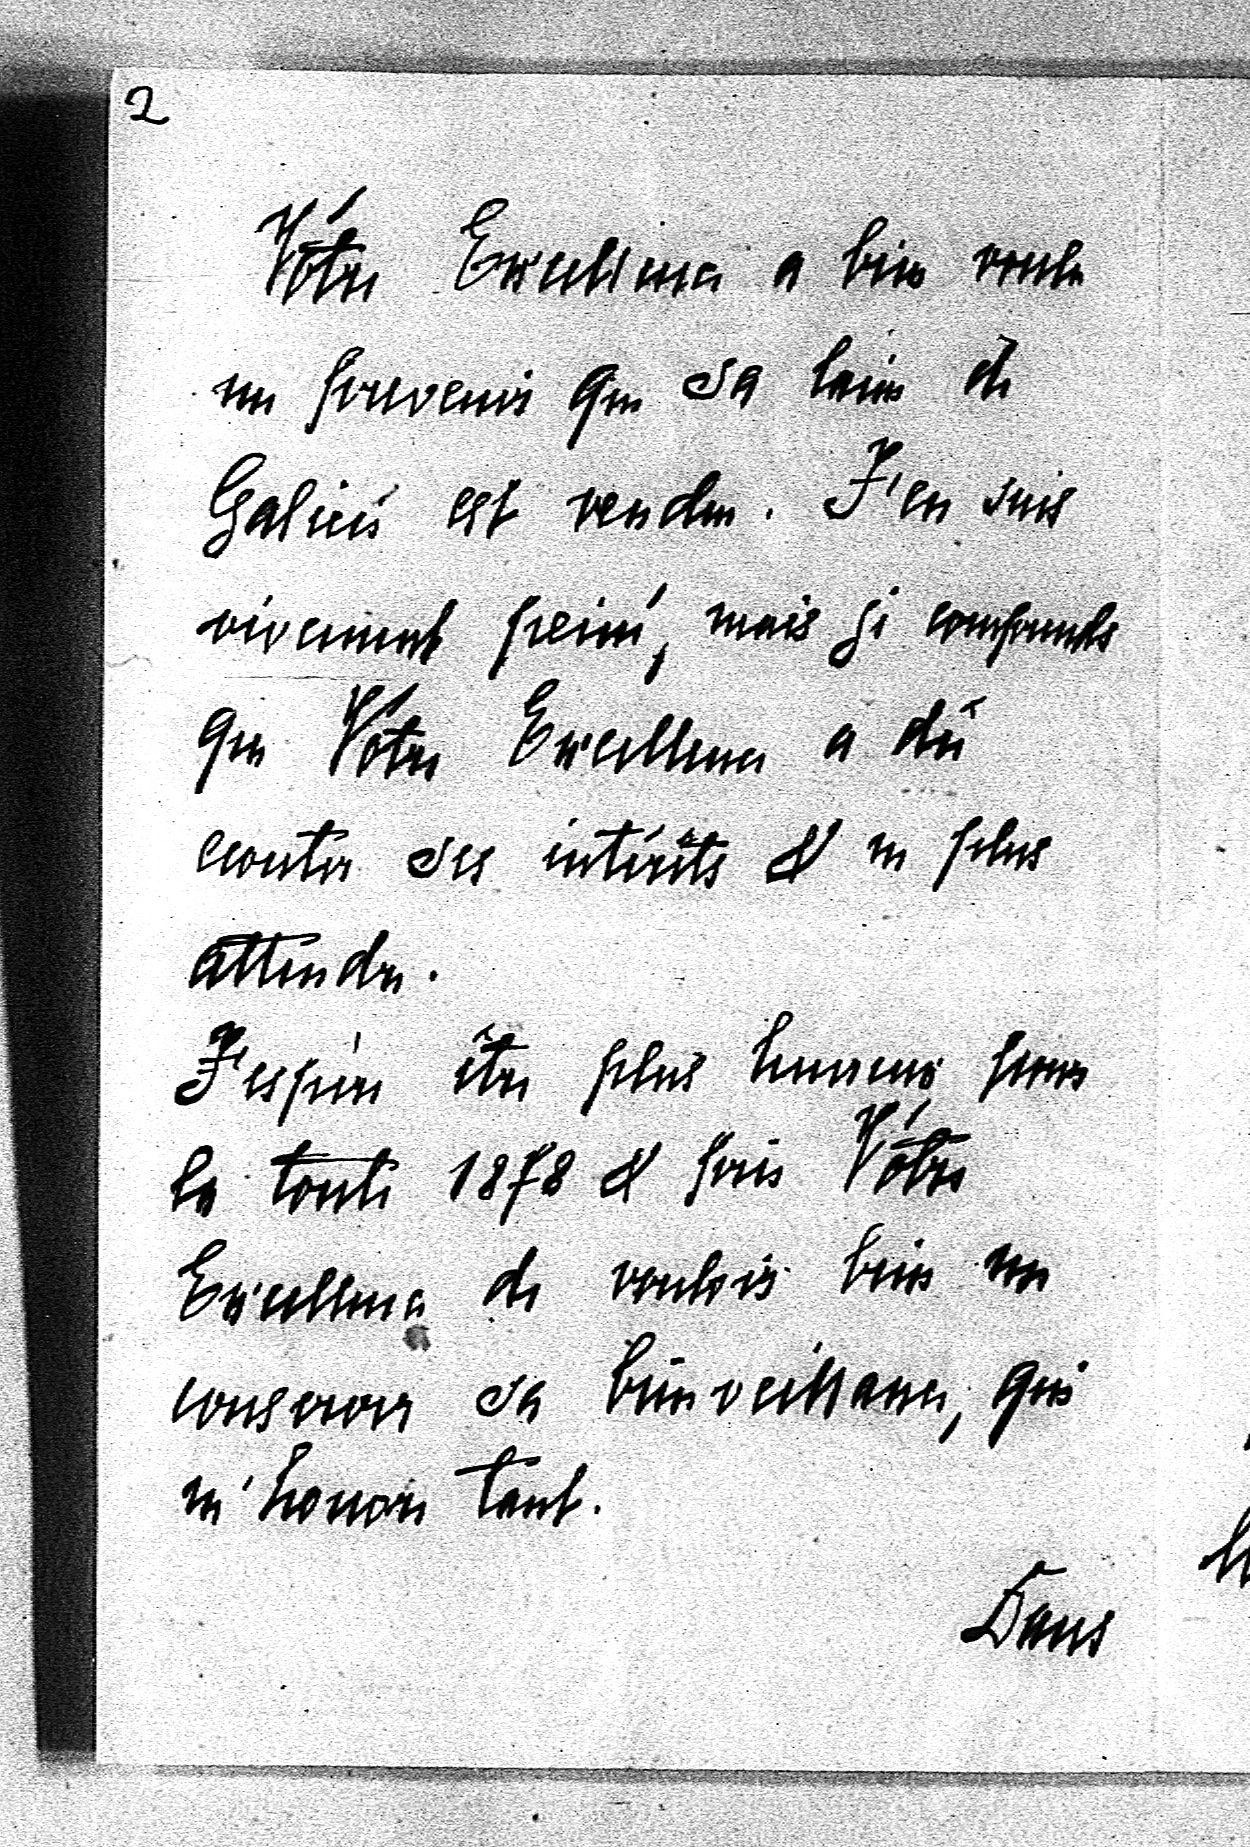 2
Vôtre Excellence a bien voulu
me prevenir que sa laine de
Galicie est vendue. J'en suis
vivement peiné, mais je comprends
que Vôtre Excellence a dû
ecouter ses intérêts & ne plus
attendre.
J'espère être plus heureux pour
la tonte 1878 & prie Vôtre
Excellence de vouloir bien me
conserver sa bienveillance, qui
m'honore tant.
Dans